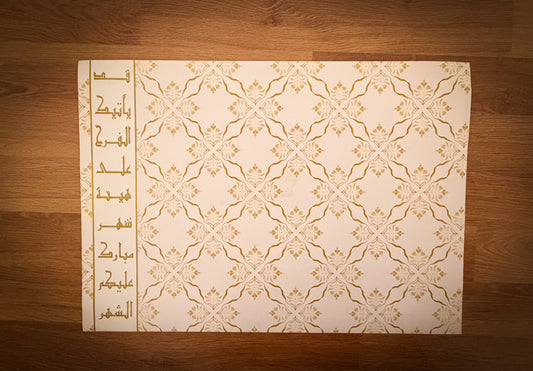 قد
ياتيك
الفرح
على
هيئة
شهر
مبارك
عليكم
الشهر